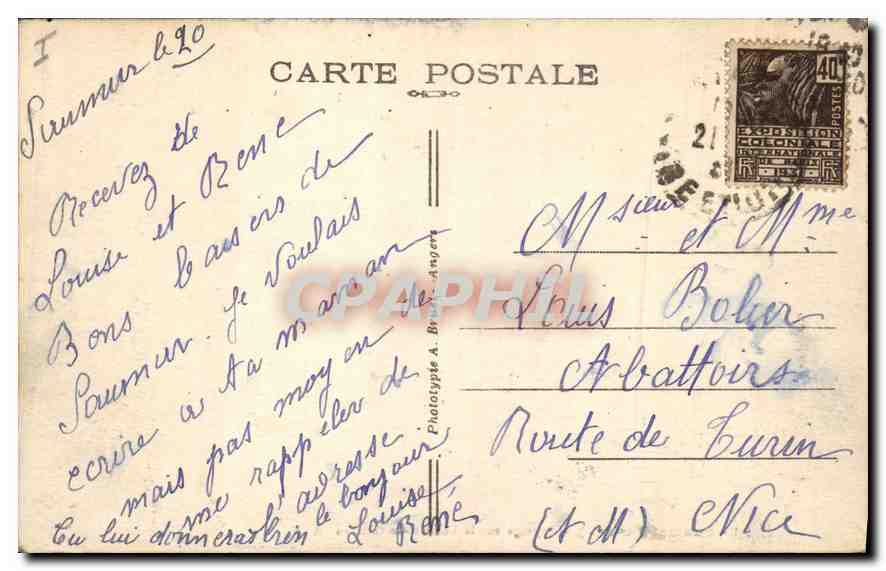 I
Saumur le 20
CARTE POSTALE
Recevez de
Louise et René
Bons baisers de
Saumur. Je voulais
ecrire a ta maman
mais pas moyen de
me rappeler de
l'adresse
Tu lui donneras bien le bonjour
Louise
René
Phototypie A. Bruel - Angers
40c
POSTES
EXPOSITION
COLONIALE
INTERNATIONALE
DE PARIS
1931
RF RF
21
Msieur et Mme
Louis
Abattoirs
Route de Turin
(A M) Nice
CPAPHIL